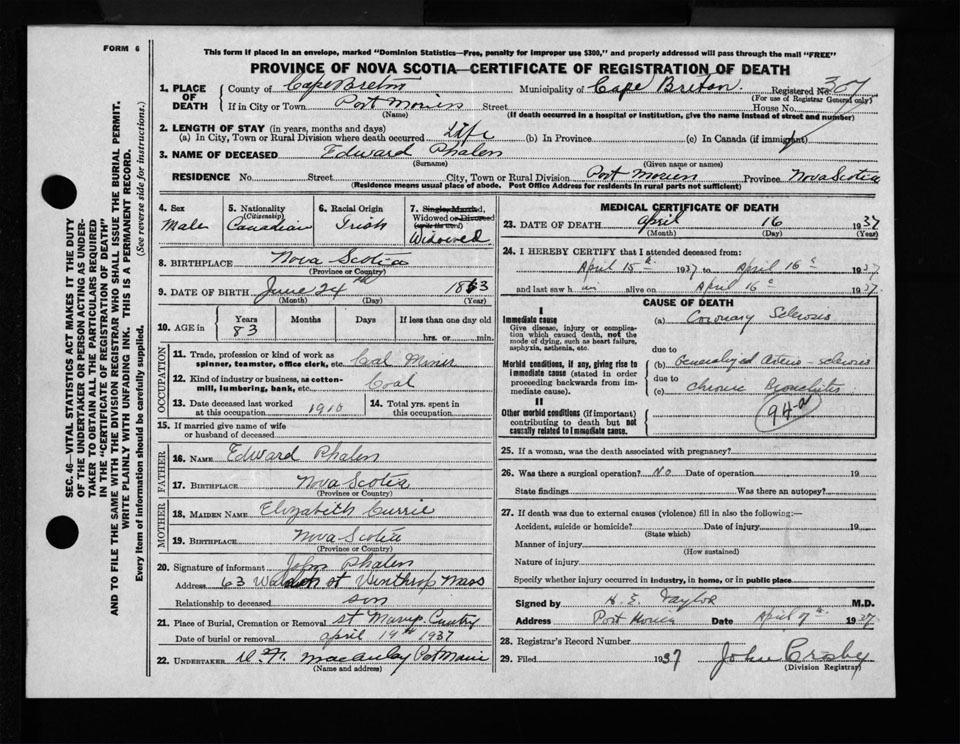 FORM 6
This form if placed in an envelope, marked "Dominion Statistics—Free, penalty for improper use $300," and properly addressed will pass through the mail "FREE"
PROVINCE OF NOVA SCOTIA—CERTIFICATE OF REGISTRATION OF DEATH
1. PLACE OF DEATH County of Cape Breton Municipality of Cape Breton. Registered No. 307
(For use of Registrar General only)
If in City or Town Port Morien Street House No.
(Name) (If death occurred in a hospital or institution, give the name instead of street and number)
2. LENGTH OF STAY (in years, months and days)
(a) In City, Town or Rural Division where death occurred Life (b) In Province (c) In Canada (if immigrant)
3. NAME OF DECEASED Edward Phalen
(Surname) (Given name or names)
RESIDENCE No. Street City, Town or Rural Division Port Morien Province Nova Scotia
(Residence means usual place of abode. Post Office Address for residents in rural parts not sufficient)
SEC. 46—VITAL STATISTICS ACT MAKES IT THE DUTY
OF THE UNDERTAKER OR PERSON ACTING AS UNDER-
TAKER TO OBTAIN ALL THE PARTICULARS REQUIRED
IN THE "CERTIFICATE OF REGISTRATION OF DEATH"
AND TO FILE THE SAME WITH THE DIVISION REGISTRAR WHO SHALL ISSUE THE BURIAL PERMIT.
WRITE PLAINLY WITH UNFADING INK. THIS IS A PERMANENT RECORD.
Every item of information should be carefully supplied. (See reverse side for instructions.)
4. Sex 5. Nationality (Citizenship) 6. Racial Origin 7. Single, Married, Widowed or Divorced (write the word)
Male Canadian Irish Widowed
8. BIRTHPLACE Nova Scotia
(Province or Country)
9. DATE OF BIRTH June 24th 1853
(Month) (Day) (Year)
10. AGE in Years Months Days If less than one day old
83 hrs. or min.
OCCUPATION
11. Trade, profession or kind of work as spinner, teamster, office clerk, etc. Coal Miner
12. Kind of industry or business, as cotton-mill, lumbering, bank, etc. Coal
13. Date deceased last worked at this occupation 1910 14. Total yrs. spent in this occupation
15. If married give name of wife or husband of deceased
FATHER
16. NAME Edward Phalen
17. BIRTHPLACE Nova Scotia
(Province or Country)
MOTHER
18. MAIDEN NAME Elizabeth Currie
19. BIRTHPLACE Nova Scotia
(Province or Country)
20. Signature of informant John Phalen
Address 63 st Winthrop Mass
Relationship to deceased son
21. Place of Burial, Cremation or Removal St Marys
Date of burial or removal april 19th 1937
22. UNDERTAKER macaulay Port Morien
(Name and address)
MEDICAL CERTIFICATE OF DEATH
23. DATE OF DEATH April 16 1937
(Month) (Day) (Year)
24. I HEREBY CERTIFY that I attended deceased from:
April 15th 1937 to April 16 1937
and last saw him alive on April 16 1937.
CAUSE OF DEATH
I
Immediate cause
Give disease, injury or complication which caused death, not the mode of dying, such as heart failure, asphyxia, asthenia, etc.
(a) Coronary Sclerosis
due to
Morbid conditions, if any, giving rise to immediate cause (stated in order proceeding backwards from immediate cause).
(b) Generalized Arterio-sclerosis
due to
(c) Chronic Bronchitis
II
Other morbid conditions (if important) contributing to death but not causally related to immediate cause.
94-a
25. If a woman, was the death associated with pregnancy?
26. Was there a surgical operation? No Date of operation 19
State findings Was there an autopsy?
27. If death was due to external causes (violence) fill in also the following:—
Accident, suicide or homicide? Date of injury 19
(State which)
Manner of injury
(How sustained)
Nature of injury
Specify whether injury occurred in industry, in home, or in public place
Signed by H. E. Taylor M.D.
Address Port Morien Date April 1937
28. Registrar's Record Number
29. Filed 1937 John Crosby
(Division Registrar)